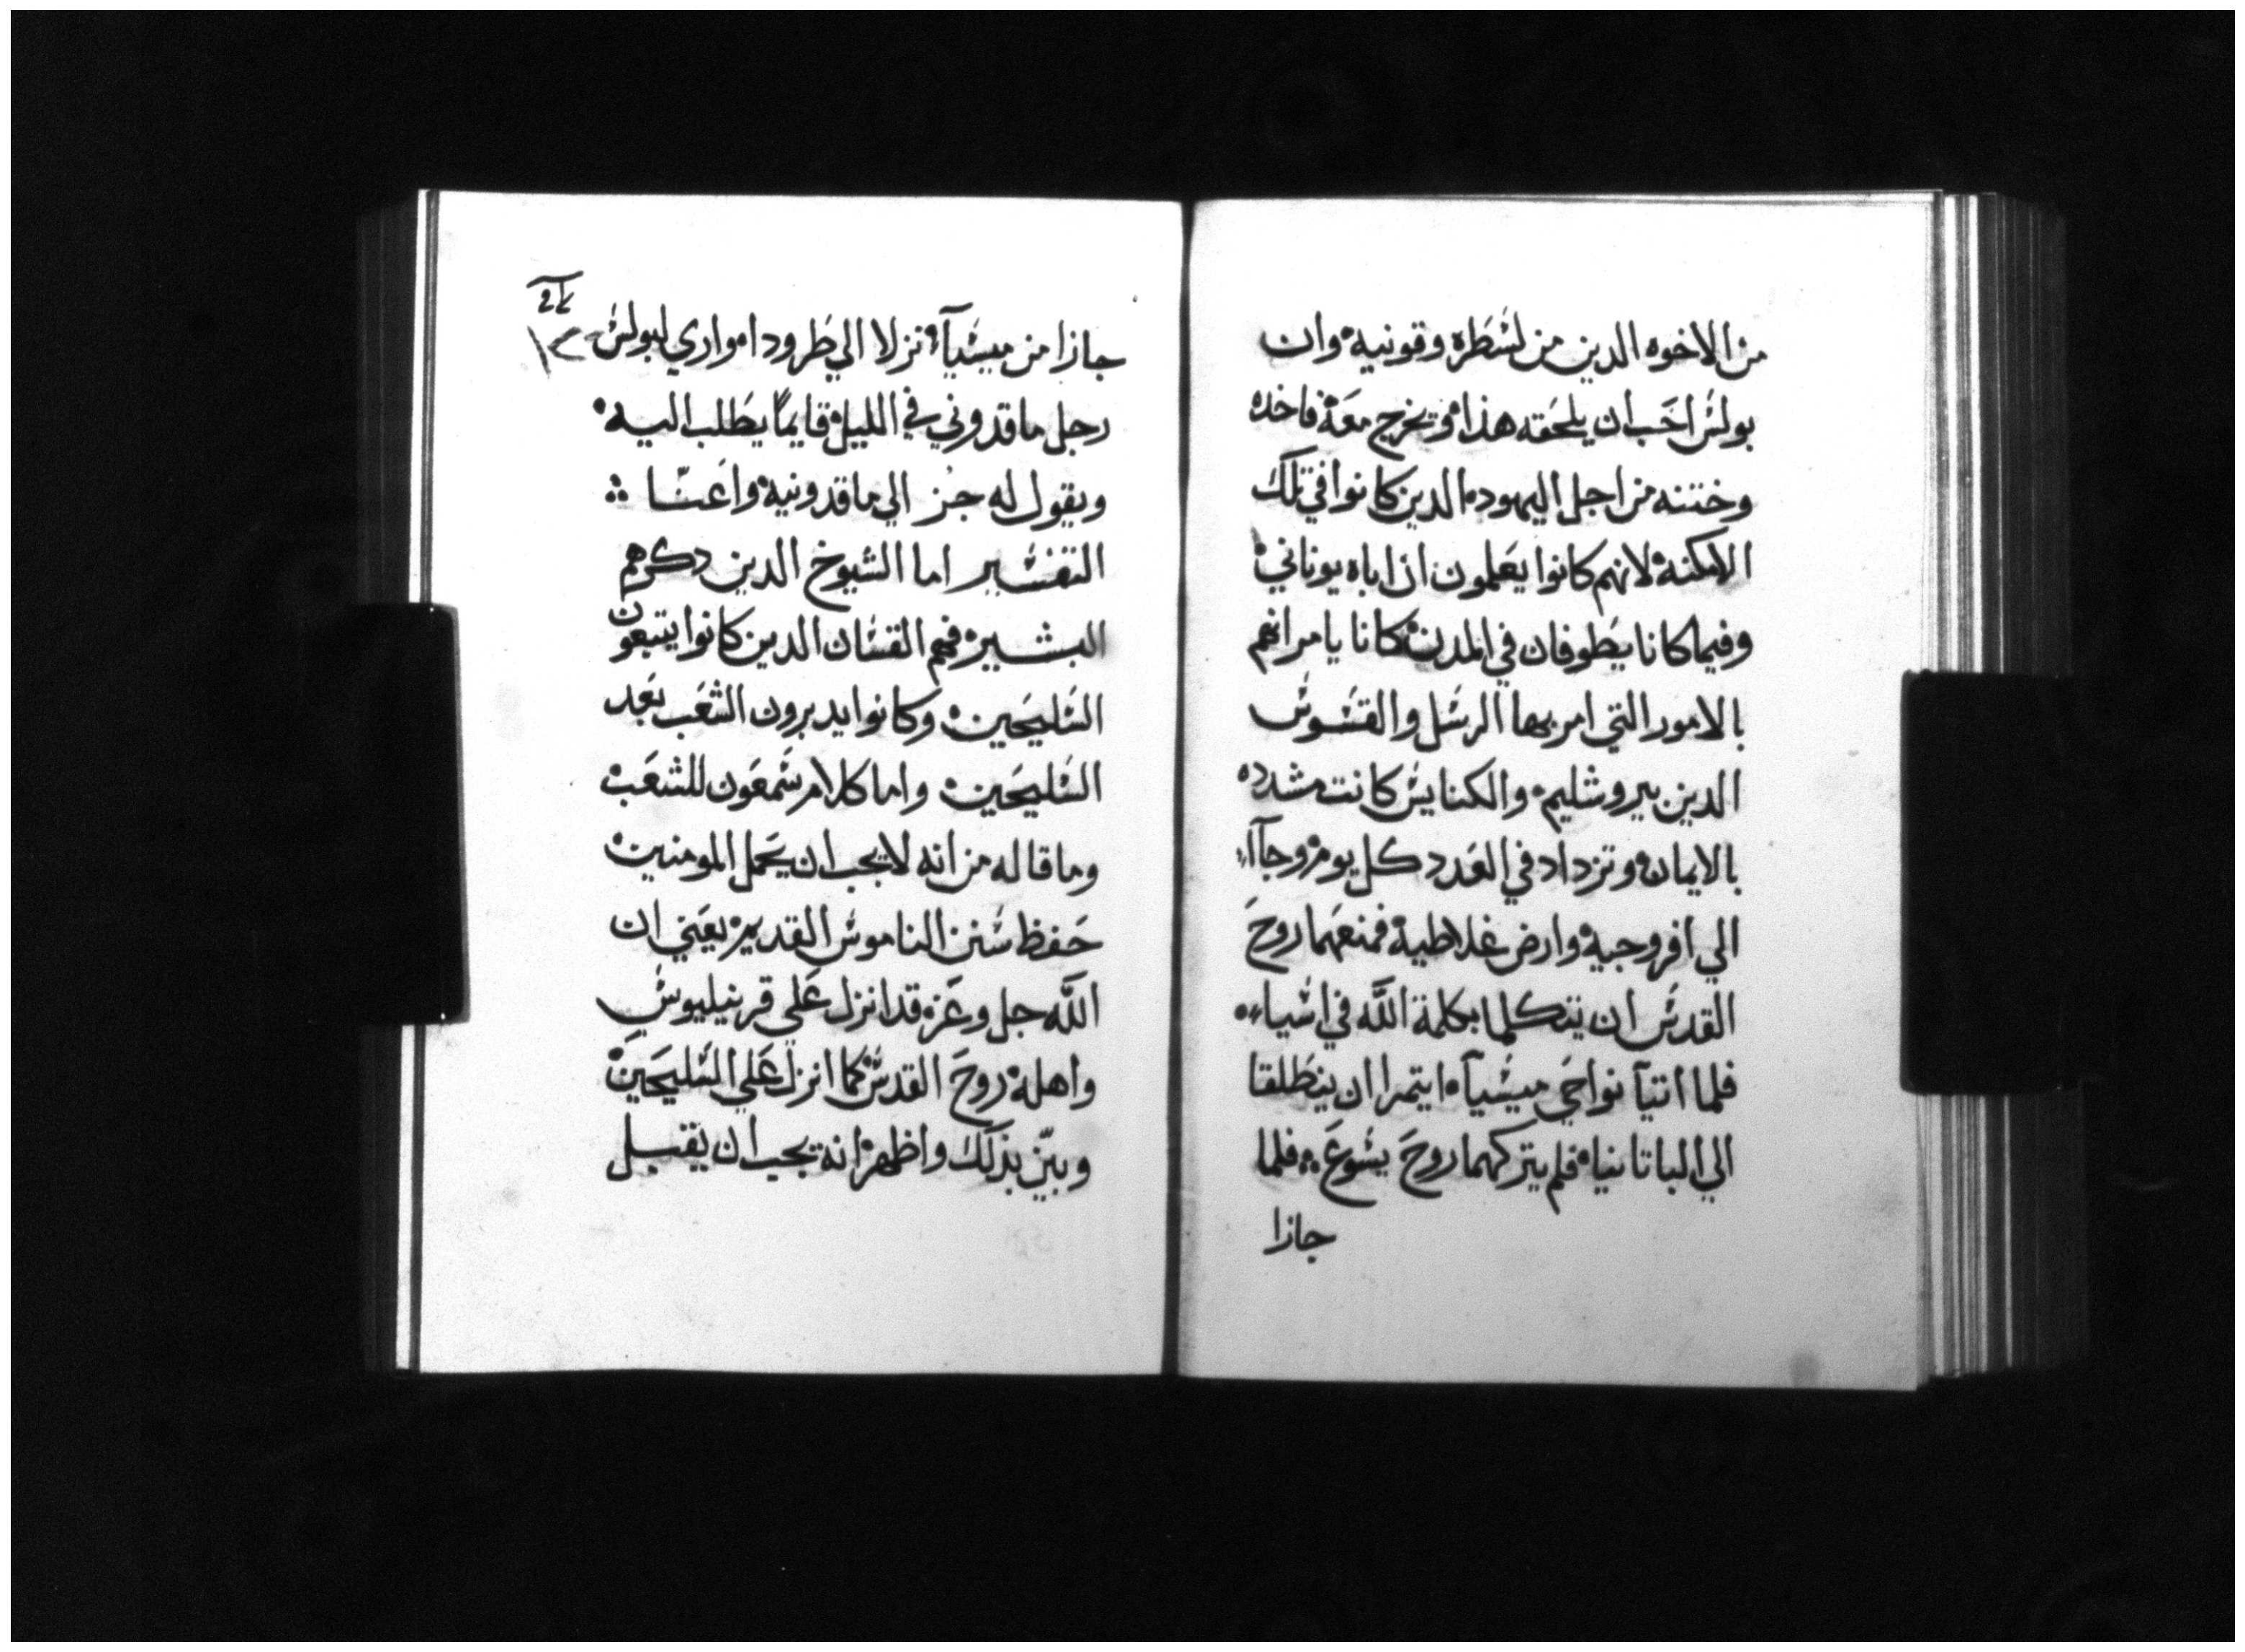 من الاخوه الدين من لسطرة وقونيه وان
بولس احب ان يلحقه هذا وتخرج معه فاخده
وختنه من اجل اليهود الدين كانوا في تلك
الامكنة لانهم كانوا يعلمون ان اباه يوناني
وفيما كانا يطوفان في المدن كانا يامرانهم
بالامور التي امر بها الرسل والقسوس
الدين بيروشليم والكنايس كانت مشدده
بالايمان وتزداد في العدد كل يوم وجآاء
الي افروجيه وارض غلاطية فمنعهما روح
القدس ان يتكلما بكلمة الله في اسياء
فلما اتيآ نواحي ميسيآ ايتمرا ان ينطلقا
الي الباتانياه فلم يتركهما روح يسوع فلما
جازا
جازا من ميسيآء نزلا الي طرودا مواري لبولس
رجل ماقدوني في الليل قايماً يطلب اليه
ويقول له جز الي ماقدونية واعنّا
التفسير اما الشيوخ الدين دكرهم
البشير فهم القسان الدين كانوا يتبعون
السليحين وكانوا يدبرون الشعب بعد
السليحين واما كلام سمعون للشعب
وما قاله من انه لا يجب ان يحمل المومنين
حفظ سنن الناموس القديم يعني ان
الله جل وعز قد انزل علي قرنيليوس
واهله روح القدس كما انزل علي السليحين
وبيّن بذلك واظهر انه يجب ان يقتبل